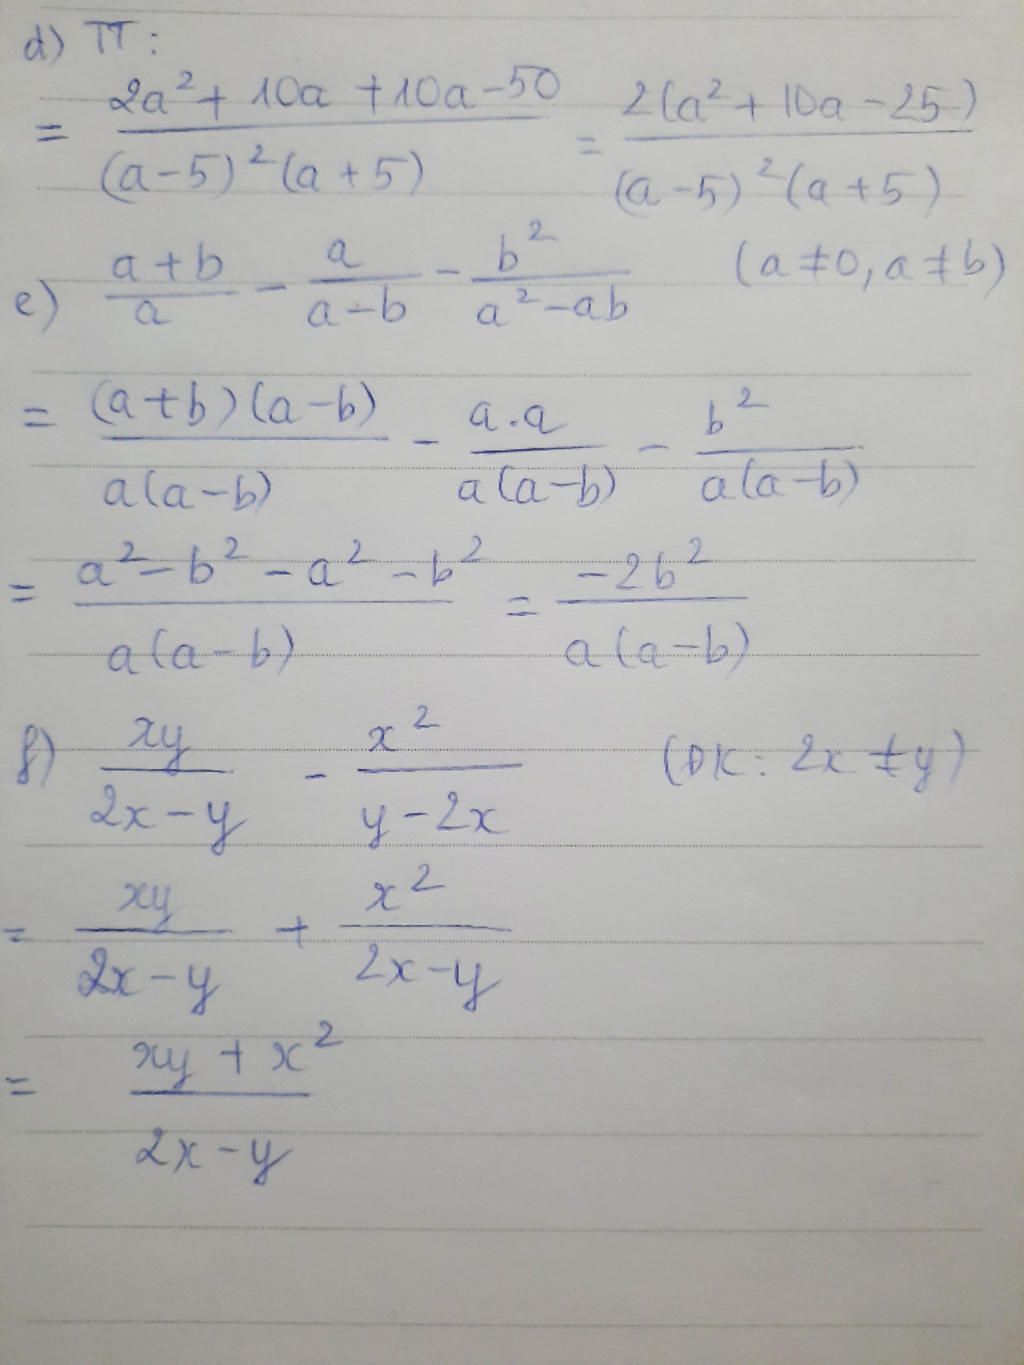 d) TT:
= (2a² + 10a + 10a - 50)/((a-5)²(a+5)) = (2(a² + 10a - 25))/((a-5)²(a+5))
e) (a+b)/a - a/(a-b) - b²/(a²-ab) (a≠0, a≠b)
= ((a+b)(a-b))/(a(a-b)) - (a.a)/(a(a-b)) - b²/(a(a-b))
= (a² - b² - a² - b²)/(a(a-b)) = (-2b²)/(a(a-b))
f) xy/(2x-y) - x²/(y-2x) (ĐK: 2x ≠ y)
= xy/(2x-y) + x²/(2x-y)
= (xy + x²)/(2x-y)